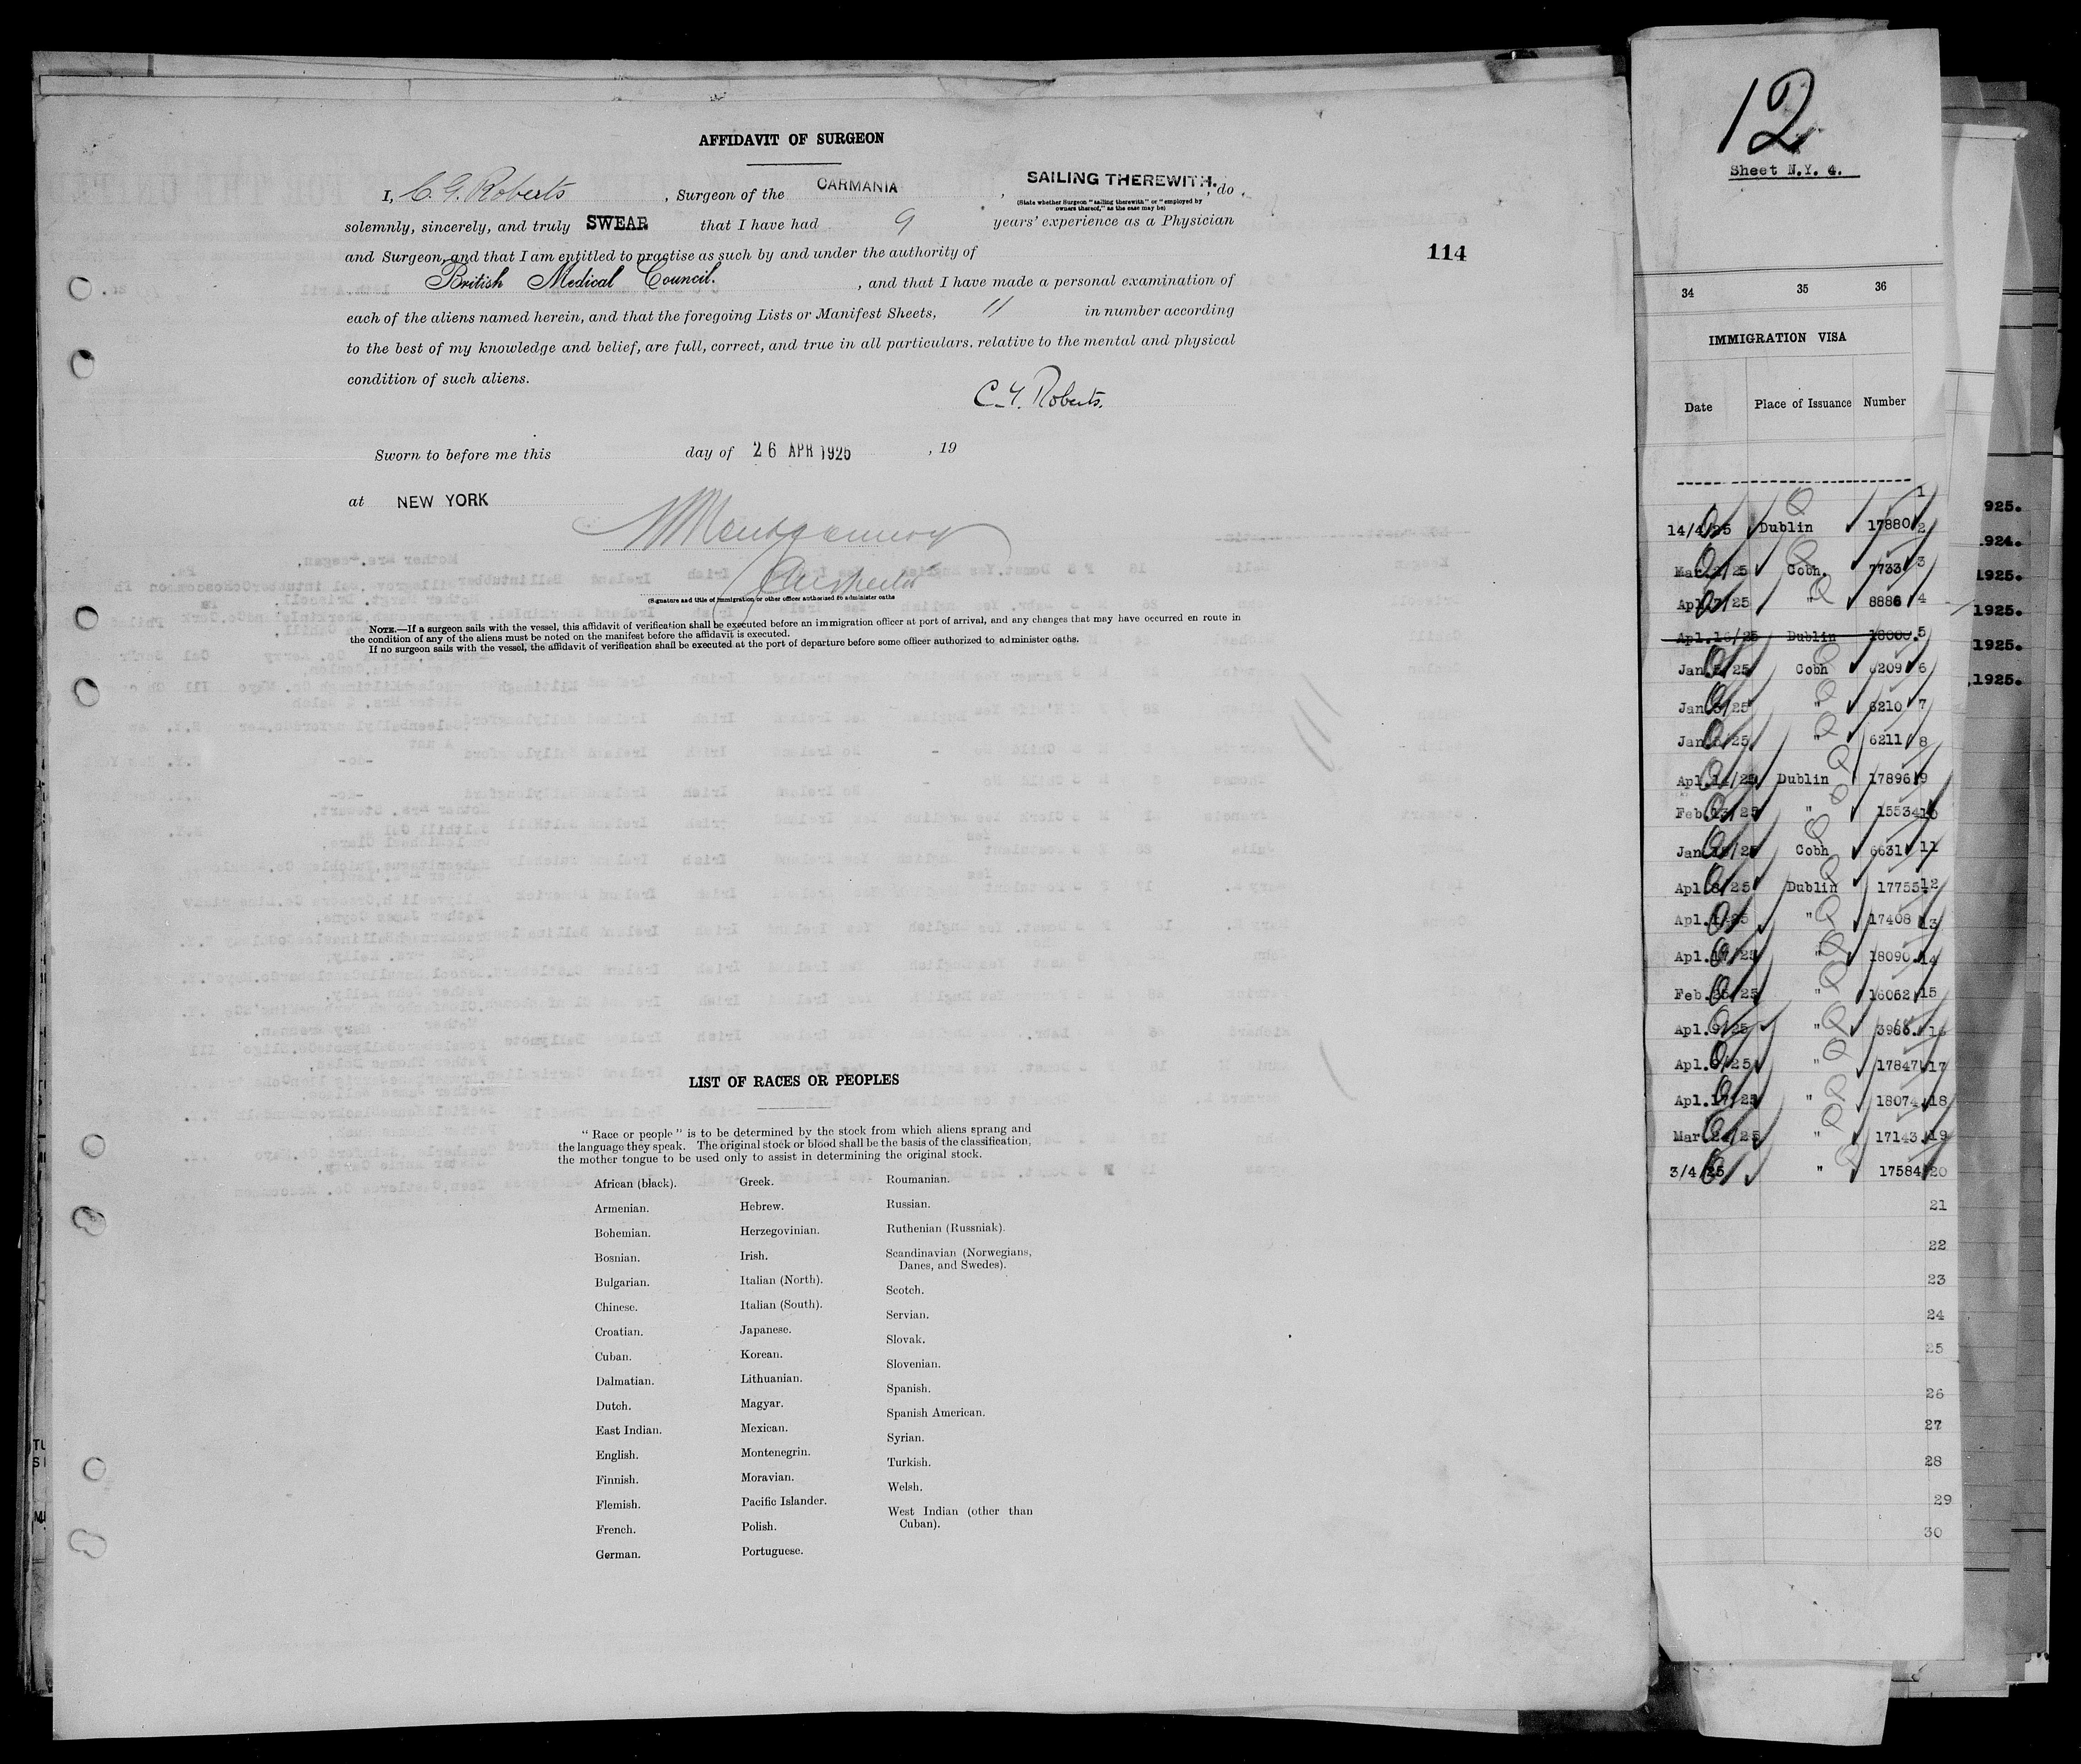 AFFIDAVIT OF SURGEON
I, C. G. Roberts , Surgeon of the CARMANIA , SAILING THEREWITH. , do
(State whether Surgeon "sailing therewith" or "employed by
owners thereof," as the case may be)
solemnly, sincerely, and truly SWEAR that I have had 9 years' experience as a Physician
and Surgeon, and that I am entitled to practise as such by and under the authority of
British Medical Council. , and that I have made a personal examination of
each of the aliens named herein, and that the foregoing Lists or Manifest Sheets, 11 in number according
to the best of my knowledge and belief, are full, correct, and true in all particulars, relative to the mental and physical
condition of such aliens.
C. G. Roberts.
Sworn to before me this day of 26 APR 1925 , 19
at NEW YORK
Montgomery
(Signature and title of immigration or other officer authorized to administer oaths
NOTE.—If a surgeon sails with the vessel, this affidavit of verification shall be executed before an immigration officer at port of arrival, and any changes that may have occurred en route in
the condition of any of the aliens must be noted on the manifest before the affidavit is executed.
If no surgeon sails with the vessel, the affidavit of verification shall be executed at the port of departure before some officer authorized to administer oaths.
114
LIST OF RACES OR PEOPLES
"Race or people" is to be determined by the stock from which aliens sprang and
the language they speak. The original stock or blood shall be the basis of the classification,
the mother tongue to be used only to assist in determining the original stock.
African (black).
Armenian.
Bohemian.
Bosnian.
Bulgarian.
Chinese.
Croatian.
Cuban.
Dalmatian.
Dutch.
East Indian.
English.
Finnish.
Flemish.
French.
German.
Greek.
Hebrew.
Herzegovinian.
Irish.
Italian (North).
Italian (South).
Japanese.
Korean.
Lithuanian.
Magyar.
Mexican.
Montenegrin.
Moravian.
Pacific Islander.
Polish.
Portuguese.
Roumanian.
Russian.
Ruthenian (Russniak).
Scandinavian (Norwegians,
Danes, and Swedes).
Scotch.
Servian.
Slovak.
Slovenian.
Spanish.
Spanish American.
Syrian.
Turkish.
Welsh.
West Indian (other than
Cuban).
12
Sheet N.Y. 4.
34 35 36
IMMIGRATION VISA
Date Place of Issuance Number
1
14/4/25 Dublin 17880 2
Mar. /25 Cobh. 7733 3
Apl. /25 " 8886 4
Apl.16/25 Dublin 5
Jan. /25 Cobh 6209 6
Jan. /25 " 6210 7
Jan. /25 " 6211 8
Apl.14/25 Dublin 17896 9
Feb.13/25 " 15534 10
Jan. /25 Cobh 6631 11
Apl. /25 Dublin 17755 12
Apl. /25 " 17408 13
Apl.17/25 " 18090 14
Feb.25/25 " 16062 15
Apl.9/25 " 3966. 16
Apl. /25 " 17847 17
Apl.17/25 " 18074 18
Mar. /25 " 17143 19
3/4/25 " 17584 20
21
22
23
24
25
26
27
28
29
30
925.
1924.
1925.
1925.
1925.
1925.